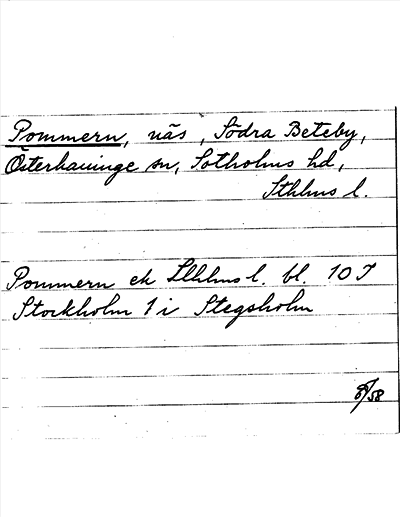 Pommern, näs, Södra Beteby,
Österhaninge sn, Sotholms hd,
Sthlms l.
Pommern ek Sthlms l. bl. 10 J
Stockholm 1 i Stegsholm
/58